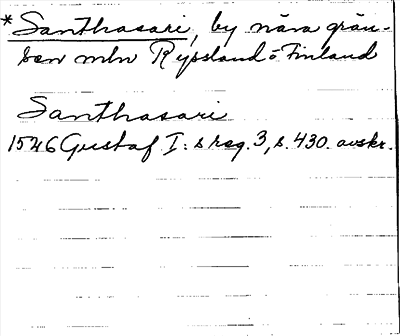 * Santhasari, by nära grän-
sen mln Ryssland o Finland
Santhasari
1546 Gustaf I: s reg. 3, s. 430. avskr.